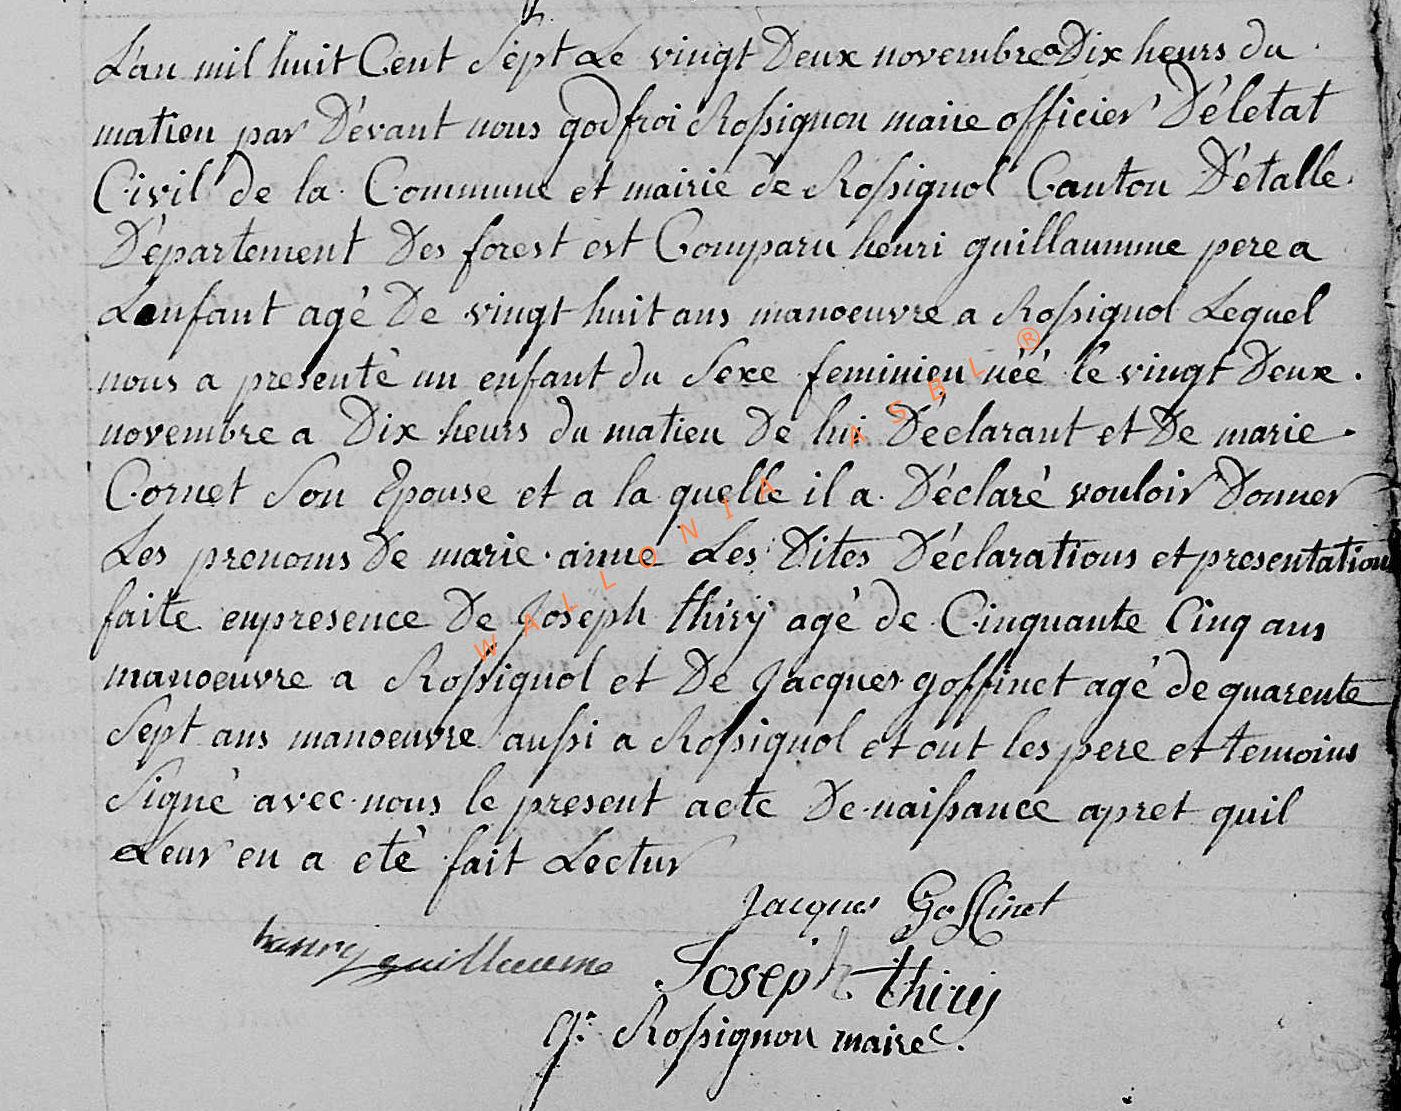 L'an mil huit Cent Sept Le vingt Deux novembre a Dix heurs du
matien par Dévant nous godfroi Rossignon maire officier D'életat
Civil de la Commune et mairie de Rossignol Canton D'étalle
Département Des forest est Comparu henri guillaumme pere a
L'enfant agé De vingt huit ans manoeuvre a Rossignol Lequel
nous a presenté un enfant du Sexe feminien néé le vingt Deux
novembre a Dix heurs du matien De lui Déclarant et De marie
Cornet Son Epouse et a la quelle il a Déclaré vouloir Donner
Les prenoms De marie anne Les Dites Déclarations et presentation
faite enpresence De Joseph thirÿ agé de Cinquante Cinq ans
manoeuvre a Rossignol et De Jacques goffinet agé de quarente
Sept ans manoeuvre aussi a Rossignol et ont les pere et temoins
Signé avec nous le present acte De naissance apret quil
Leur en a eté fait Lectur
Jacques Goffinet
henrÿ guillaume
Joseph thirÿ
Gr. Rossignon maire.
WALLONIA ASBL ®